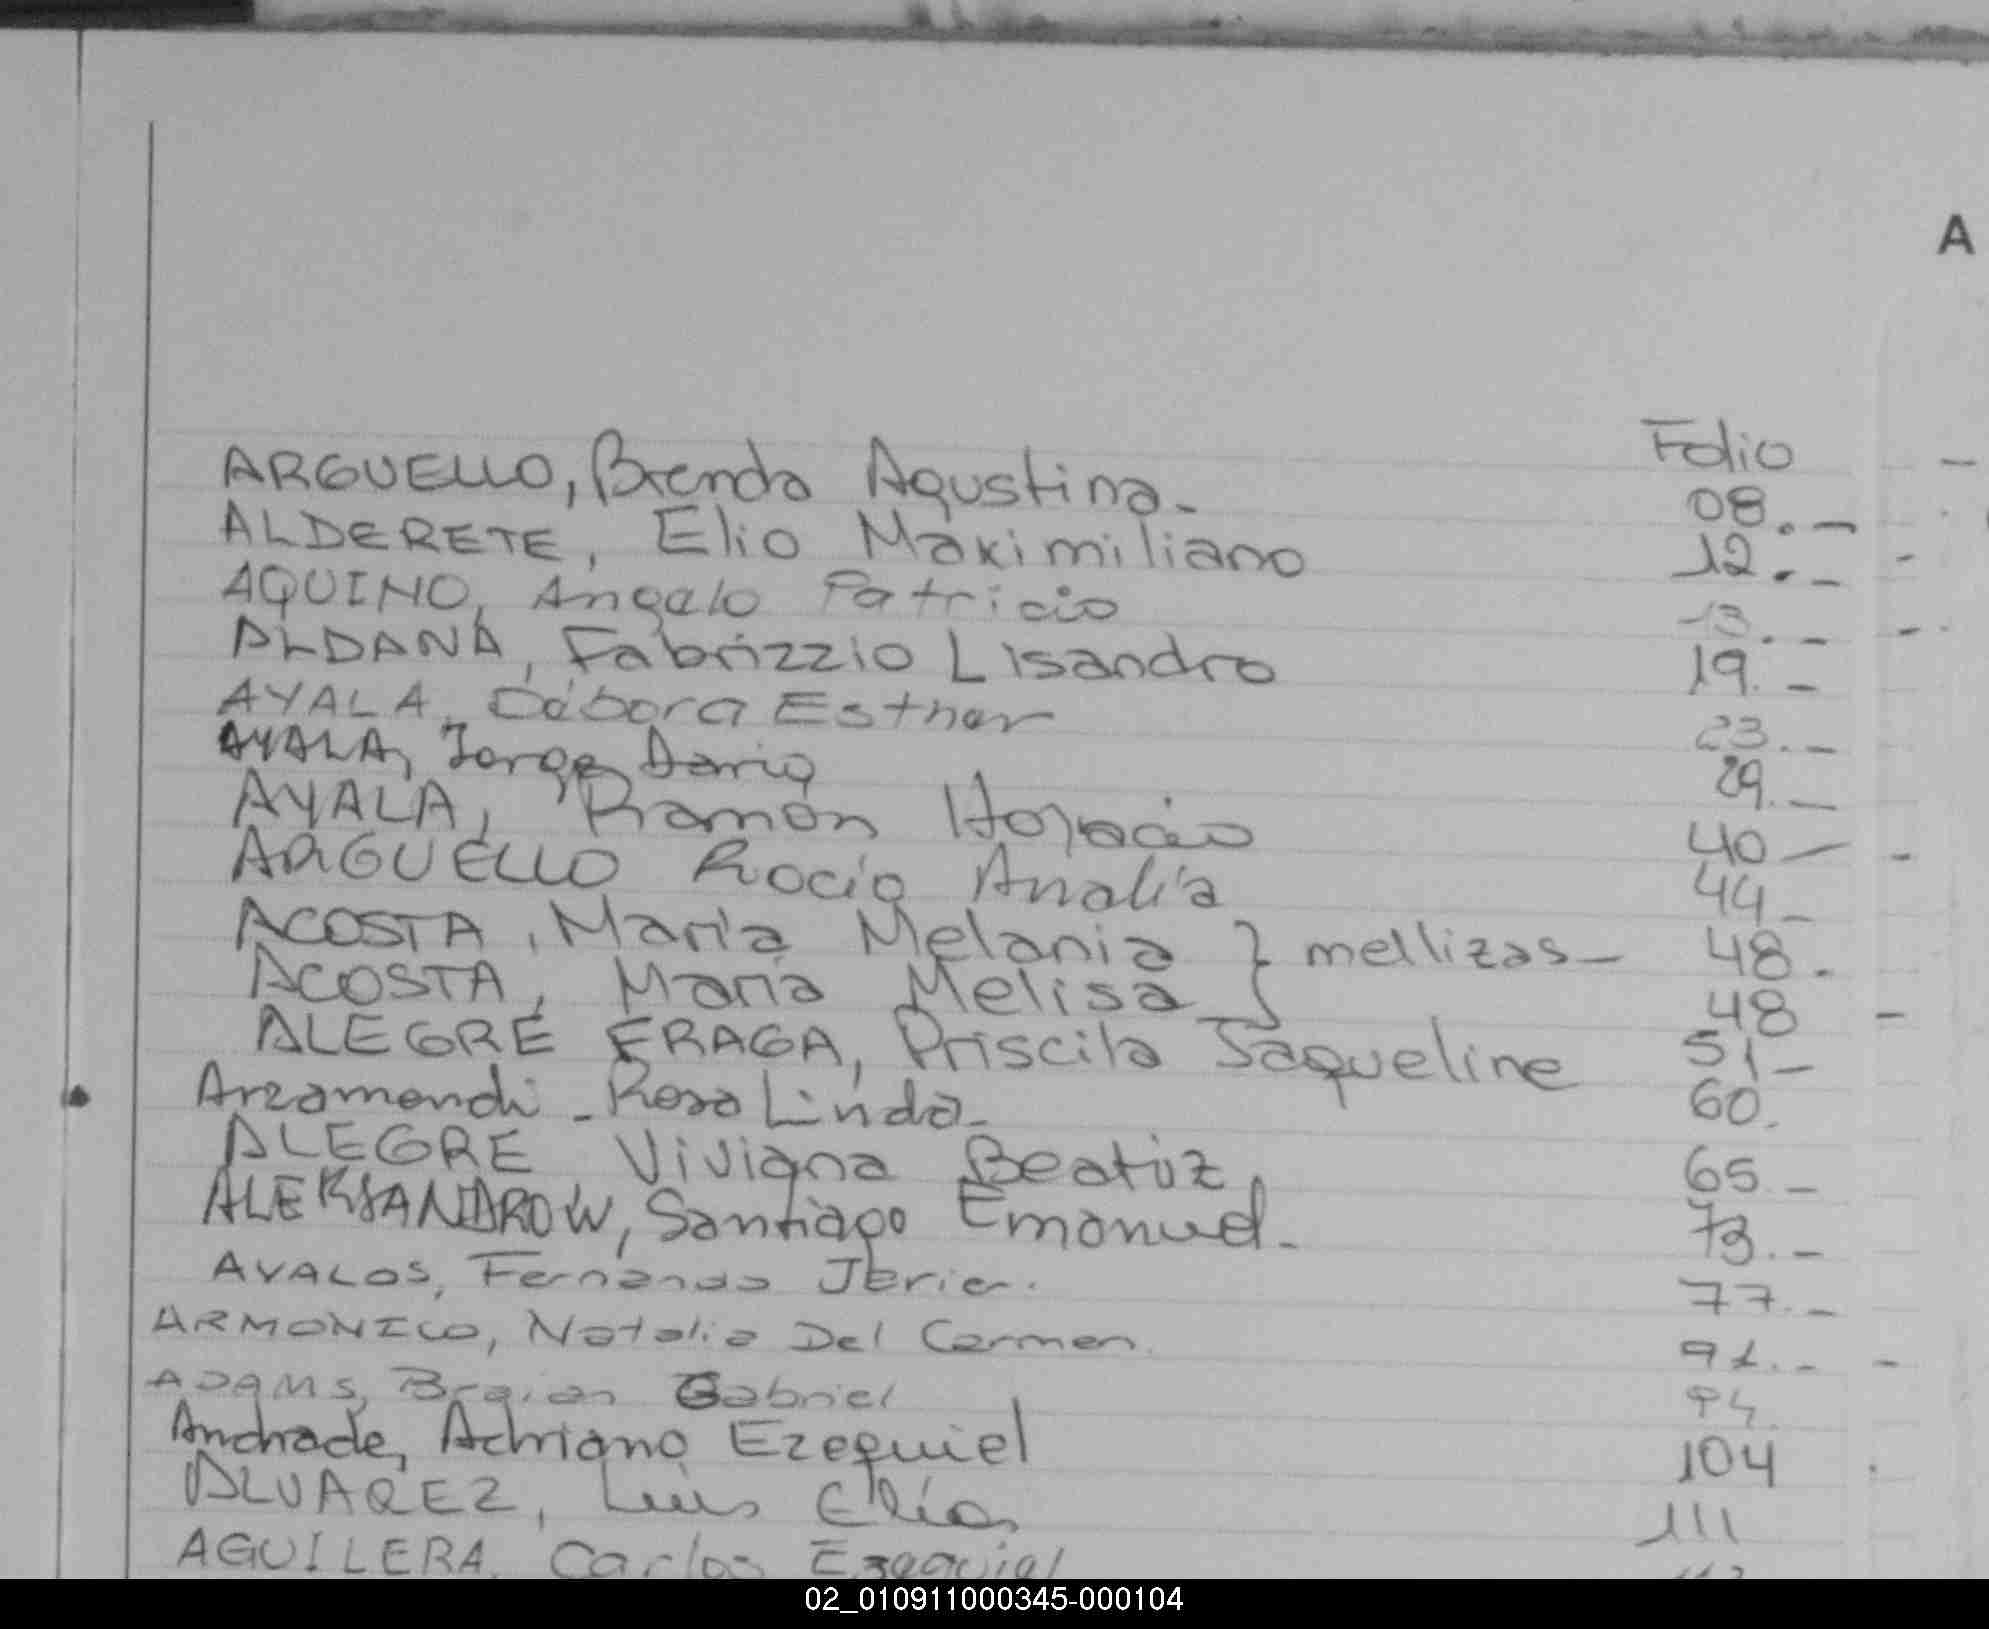 A
Folio
ARGUELLO, Brenda Agustina. 08.-
ALDERETE, Elio Maximiliano 12.-
AQUINO, Angelo Patricio 13.-
ALDANA, Fabrizzio Lisandro 19.-
AYALA, Débora Esther 23.-
AYALA, Jorge Dario 29.-
AYALA, Ramón Horacio 40-
ARGUELLO Rocio Analía 44-
ACOSTA, María Melania } mellizas- 48.
ACOSTA, María Melisa 48
ALEGRE FRAGA, Priscila Jaqueline 51-
Arzamendi - Rosa Linda- 60.
ALEGRE Viviana Beatriz, 65-
ALEKSANDROW, Santiago Emanuel.- 73.-
AVALOS, Fernando Javier. 77.-
ARMONICO, Natalia Del Carmen. 92.-
ADAMS, Braian Gabriel 94.
Andrade, Adriano Ezequiel 104
ALVAREZ, Luis Elías 111
AGUILERA, Carlos Ezequiel
02_010911000345-000104